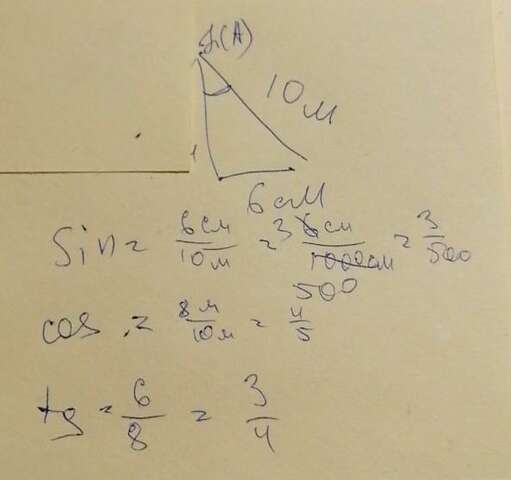 (A)
10 м
6 см
Sin = 6 см / 10 м = 3 6 см / 1000 см 500 = 3 / 500
cos = 8 м / 10 м = 4 / 5
tg = 6 / 8 = 3 / 4